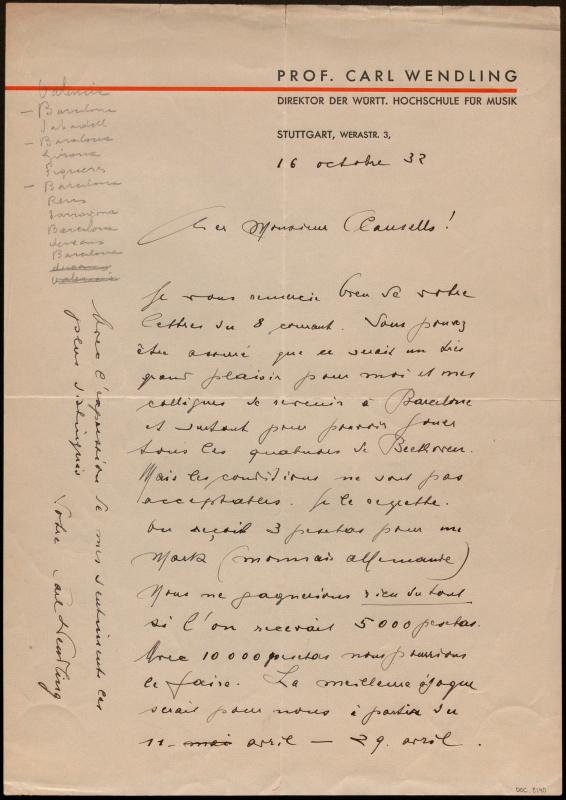 PROF. CARL WENDLING
DIREKTOR DER WÜRTT. HOCHSCHULE FÜR MUSIK
STUTTGART, WERASTR. 3,
16 octobre 32
Valencia
— Barcelona
Sabadell
— Barcelona
Girona
Figueres
— Barcelona
Reus
Tarragona
Barcelona
Barcelona
Valencia
Cher Monsieur Clausells!
Je vous remercie bien de votre
lettres du 8 courant. Vous pouvez
être assuré que ce serait un très
grand plaisir pour moi et mes
collègues de revenir à Barcelone
et surtout pour pouvoir jouer
tous les quatuors de Beethoven.
Mais les conditions ne sont pas
acceptables. Je le regrette.
On reçoit 3 pesetas pour un
Mark (monnaie allemande)
Nous ne gagnerions rien du tout
si l'on recevait 5000 pesetas.
Avec 10000 pesetas nous pourrions
le faire. La meilleure époque
serait pour nous à partir du
11. mai avril — 29. avril.
Avec l'expression de mes sentiments les
plus distingués Votre Carl Wendling
DOC. 8140